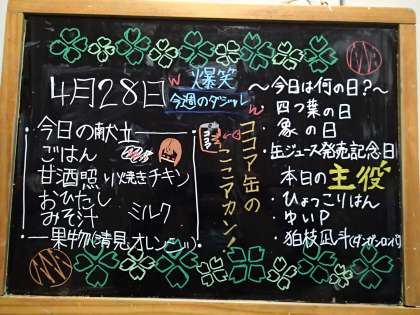 4月28日
今日の献立
ごはん
甘酒照り焼きチキン
おひたし
みそ汁
ミルク
果物(清見オレンジ)
W
爆笑
今週のダジャレ
W
ココア缶の
ここアカン!
～今日は何の日?～
・四つ葉の日
・象の日
・缶ジュース発売記念日
本日の主役
・ひょっこりはん
・ゆいP
・狛枝凪斗(ダンガンロンパ)